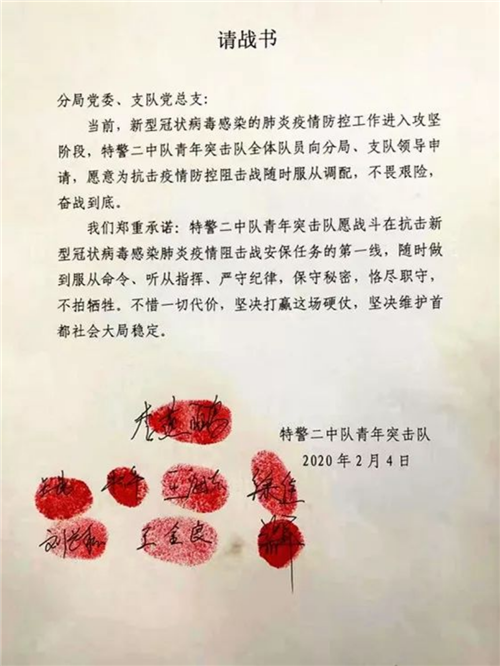 请战书
分局党委、支队党总支：
当前，新型冠状病毒感染的肺炎疫情防控工作进入攻坚
阶段，特警二中队青年突击队全体队员向分局、支队领导申
请，愿意为抗击疫情防控阻击战随时服从调配，不畏艰险，
奋战到底。
我们郑重承诺：特警二中队青年突击队愿战斗在抗击新
型冠状病毒感染肺炎疫情阻击战安保任务的第一线，随时做
到服从命令、听从指挥、严守纪律，保守秘密，恪尽职守，
不拍牺牲。不惜一切代价，坚决打赢这场硬仗，坚决维护首
都社会大局稳定。
特警二中队青年突击队
2020年2月4日
王金良